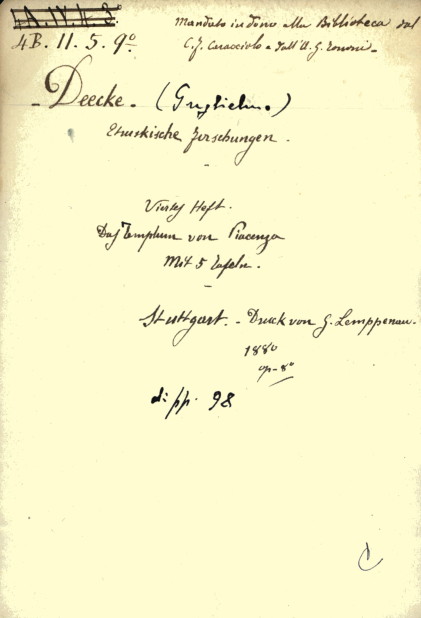 Mandato in dono alla Biblioteca dal
4B. 11. 5. 9º
C. J. Caracciolo e dall'A. G.
- Deecke. (Guglielmo)
Etruskische Forschungen.
Viertes Heft.
Das Templum von Piacenza
Mit 5 Tafeln.
Stuttgart. - Druck von G. Lemppenau.
1880
op-8º
di pp. 98
C